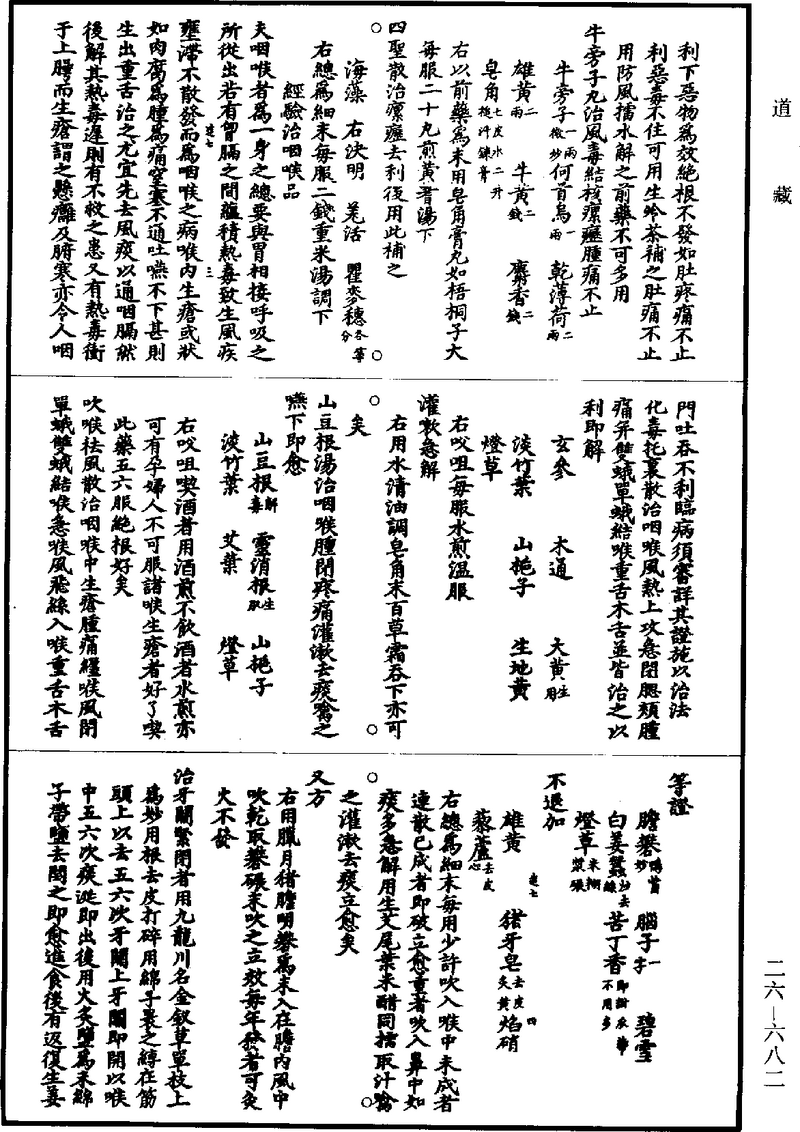 道藏
利下惡物為效絕根不發如肚疼痛不止
利惡毒不住可用生冷茶補之肚痛不止
用防風擂水解之前藥不可多用
牛旁子丸治風毒結核瘰癧腫痛不止
牛旁子一兩微炒 何首烏一兩 乾薄荷二兩
雄黃二兩 牛黃二錢 麝香二錢
皂角七皮水二升挼汁鍊膏
右以前藥為末用皂角膏丸如梧桐子大
每服二十丸煎黃耆湯下
四聖散治瘰癧去利後用此補之
海藻 石決明 羌活 瞿麥穗各等分
右總為細末每服二錢重米湯調下
經驗治咽喉品
夫咽喉者為一身之總要與胃相接呼吸之
所從出若有胷膈之間蘊積熱毒致生風疾
壅滯不散發而為咽喉之病喉內生瘡或狀
如肉腐為腫為痛窒塞不通吐嚥不下甚則
生出重舌治之尤宜先去風痰以通咽膈然
後解其熱毒遲則有不救之患又有熱毒衝
于上腭而生瘡謂之懸癰及腑寒亦令人咽
門吐吞不利臨病須審詳其證施以治法
化毒托裏散治咽喉風熱上攻急閉腮頰腫
痛并雙蛾單蛾結喉重舌木舌並皆治之以
利即解
玄參 木通 大黃生用
淡竹葉 山梔子 生地黃
燈草
右㕮咀每服水煎溫服
灌漱急解
右用水清油調皂角末百草霜吞下亦可
矣
山豆根湯治咽喉腫閉疼痛灌漱去痰嚥之
嚥下即愈
山豆根解毒 靈消根生取 山梔子
淡竹葉 艾葉 燈草
右㕮咀喫酒者用酒煎不飲酒者水煎亦
可有孕婦人不可服諸喉生瘡者好了喫
此藥五六服絕根好矣
吹喉祛風散治咽喉中生瘡腫痛纏喉風閉
單蛾雙蛾結喉急喉風飛絲入喉重舌木舌
等證
膽礬鴨觜炒 腦子一字 碧雪
白姜蠶炒去絲 苦丁香即甜瓜蒂不用多
燈草米糊漿碾
不退加
雄黃 猪牙皂去皮炙黃 焰硝
藜蘆去皮心
右總為細末每用少許吹入喉中未成者
速散已成者即破立愈重者吹入鼻中如
痰多急解用生艾尾葉米醋同擂取汁噙
之灌漱去痰立愈矣
又方
右用臘月猪膽明礬為末入在膽內風中
吹乾取礬碾末吹之立效每年發者可灸
大不發
治牙關緊閉者用九龍川名金釵草單枝上
為妙用根去皮打碎用綿子裹之縛在筯
頭上以去五六次牙關上牙關即開以喉
中五六次痰涎即出後用火炙鹽為末綿
子帶鹽去閟之即愈進食後有返復生姜
二六—六八二